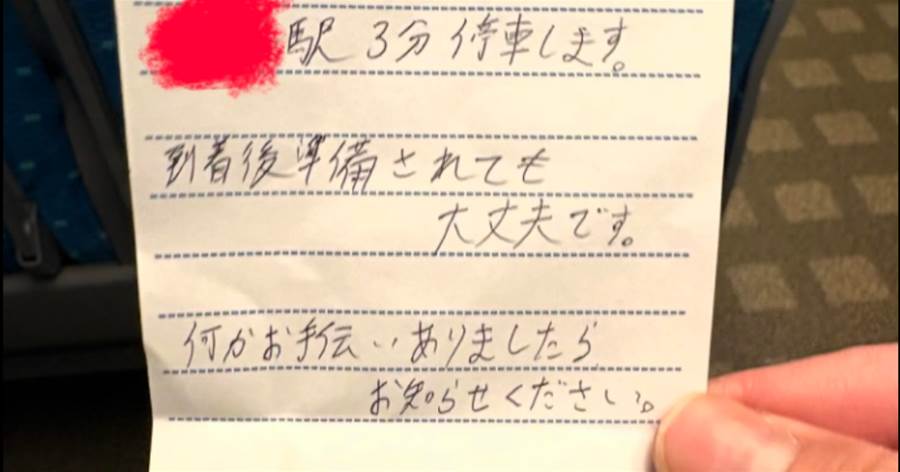 駅3分停車します。
到着後準備されても
大丈夫です。
何かお手伝いありましたら
お知らせください。